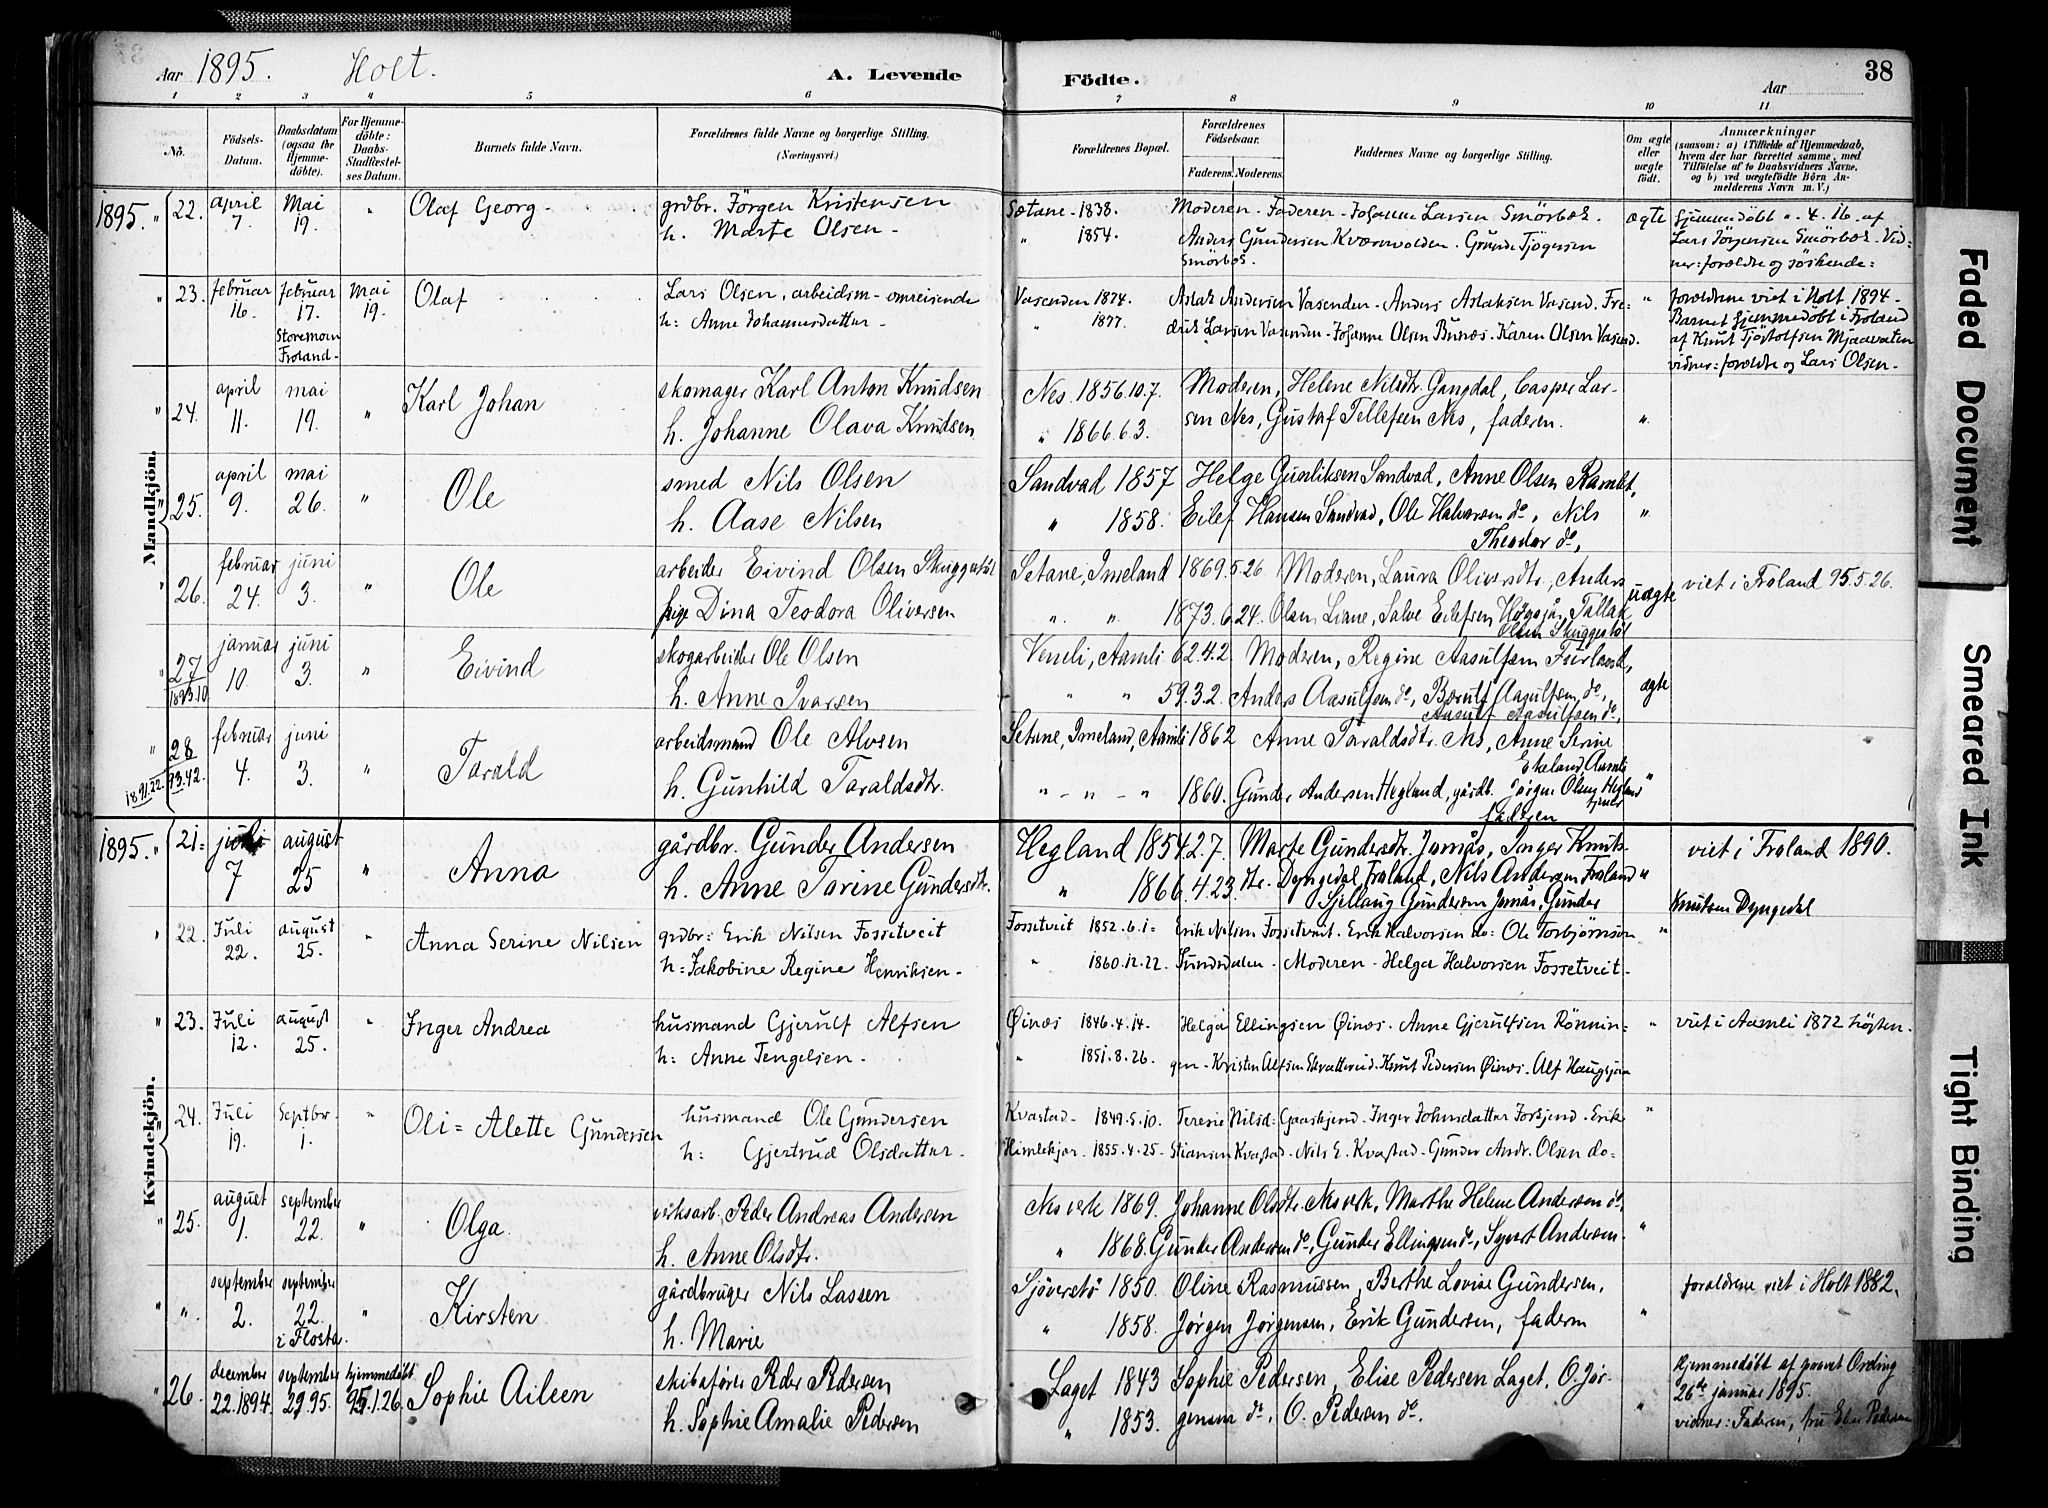 Aar 1895. Holt. A. Levende Födte. Aar 38
1 2 3 4 5 6 7 8 9 10 11
No. Födsels-Datum. Daabsdatum (ogsaa for Hjemmedöbte). For Hjemmedöbte: Daabs-Stadfæstelses Datum. Barnets fulde Navn. Forældrenes fulde Navne og borgerlige Stilling. (Næringsvei.) Forældrenes Bopæl. Forældrenes Födselsaar. Faderens. Moderens. Faddernes Navne og borgerlige Stilling. Om ægte eller uægte födt. Anmærkninger (saasom: a) i Tilfælde af Hjemmedaab, hvem der har forrettet samme, med Tilföielse af to Daabsvidners Navne, og b) ved uægtefödte Börn Anmelderens Navn m. V.)
Mandkjön.
1895. " 22. april 7. Mai 19. " Olaf Georg - grdbr. Jörgen Kristensen Sætane - 1838. Moderen - Faderen - Johanne Larsen Smörbæk. ægte hjemmedöbt - 4. 16. af
h. Marte Olsen - " 1854. Anders Gundersen Kværnvolden - Gunde Tjögersen Lars Jörgensen Smörbæk - Vid-
Smörbæk. ner: forældre og söskende:
" 23. februar 16. februar 17. Storemoen Froland - Mai 19. Olaf Lars Olsen, arbeidsm - omreisende Vasenden 1874. Aslak Andersen Vasenden - Anders Aslaksen Vasend. Fre- " forældrene viet i Holt 1894 -
h: Anne Johannesdatter - " 1877. drik Larsen Vasenden - Johanne Olsen Bunæs - Karen Olsen Vasend. Barnet hjemmedöbt i Froland
af Knut Tjöstolfsen Mjaavaten
vidner: forældre og Lars Olsen -
" 24. april 11. mai 19. " Karl Johan skomager Karl Anton Knudsen Nes. 1856.10.7. Moderen, Helene Nilsdtr. Gangdal, Casper Lar-
h. Johanne Olava Knudsen " 1866.6.3. sen Nes, Gustaf Tellefsen Nes, faderen. "
" 25. april 9. mai 26. " Ole smed Nils Olsen Sandvad 1857 Helge Gunliksen Sandvad, Anne Olsen
h. Aase Nilsen " 1858. Eilef Hansen Sandvad, Ole Halvorsen do, Nils "
Theodor do,
" 26. februar 24. juni 3. " Ole arbeider Eivind Olsen Skuggestöl Setane, Imeland 1869.5.26 Moderen, Laura Oliversdtr, Anders uægte viet i Froland 95.5.26.
pige Dina Teodora Oliversen " " 1873.6.24. Olsen Liane, Salve Eilefsen Högsjå, Tallak
Olsen Skuggestöl
" 27 1893.10 januar 10. juni 3. " Eivind skogarbeider Ole Olsen Vemli, Aamli 62.4.2. Moderen, Regine Aasulfsen
h. Anne Ivarsen " " 59.3.2. Anders Aasulfsen do, Aasulfsen do, ægte
Aasulf Aasulfsen do,
" 28 93.42. 1891.22. februar 4. juni 3. " Tarald arbeidsmand Ole Alvsen Setane, Imeland, Aamli 1862 Anne Taraldsdtr. Nes, Anne Serine
Ekeland, Aamli
h. Gunhild Taraldsdtr. " - " - " 1860. Gunder Andersen Hegland, gårdb. Jørgen Olsen "
faderen
Kvindekjön.
1895. " 21. juli 7 august 25 " Anna gårdbr. Gunder Andersen Hegland 1854.2.7. Marte Gundersdtr. Jomås, Inger Knuts- viet i Froland 1890.
h. Anne Tarine Gundersdtr. " 1866.4.23. dtr. Dyngedal, Froland, Nils Andersen Froland "
Gundersen Jomås, Gunder Knutsen Dyngedal
" 22. Juli 22. august 25. " Anna Serine Nilsen grdbr: Erik Nilsen Fossetveit Fossetveit 1852.6.1- Erik Nilsen Fossetveit. Erik Halvorsen do: Ole Torbjørnsen "
h: Jakobine Regine Henriksen - " 1860.12.22. Sundsdalen - Moderen - Helga Halvorsen Fossetveit -
" 23. Juli 12. august 25. " Inger Andrea husmand Gjerulf Alfsen Øinæs 1846.4.14. Helga Ellingsen Øinæs. Anne Gjerulfsen Rönnin- " viet i Aamli 1872 hösten.
h: Anne Tengelsen. " 1851.8.26. gen - Kristen Alfsen - Knut Pedersen Øinæs. Alf Haugsjaa
" 24. Juli 19. Septbr. 1. " Oli= Alette Gundersen husmand Ole Gundersen Kvastad - 1849.5.10. Teresie Nilsd: Gaaskjend - Inger Johnsdatter - Erik "
h: Gjertrud Olsdatter - Himlekjær - 1855.4.25 - Stiansen Kvastad - Nils E. Kvastad - Gunder Andr. Olsen do -
" 25. august 1. september 22. " Olga. verksarb. Peder Andreas Andersen Nes verk 1869. Johanne Olsdtr. Nes verk, Marthe Helene Andersen do,
h. Anne Olsdtr. " 1868. Gunder Andersen do, Gunder Ellingsen do, Syvert Andersen. "
" " september 2. september 22. i Flosta. " Kirsten gårdbruger Nils Lassen 1850. Oline Rasmussen, Berthe Lovise Gundersen, forældrene viet i Holt 1882.
h. Marie " 1858. Jørgen Jørgensen, Erik Gundersen, faderen "
" 26. december 22. 1894. september 29.95. hjemmedøbt 95.1.26. Sophie Aileen skibsfører Peder Pedersen Laget 1843 Sophie Pedersen, Elise Pedersen Laget, O. Jør- Hjemmedøbt af provst Ording
h. Sophie Amalie Pedersen " 1853. gensen do, O. Pedersen do. " 26de januar 1895.
vidner: Faderen, fru Pedersen
Faded Document
Smeared Ink
Tight Binding